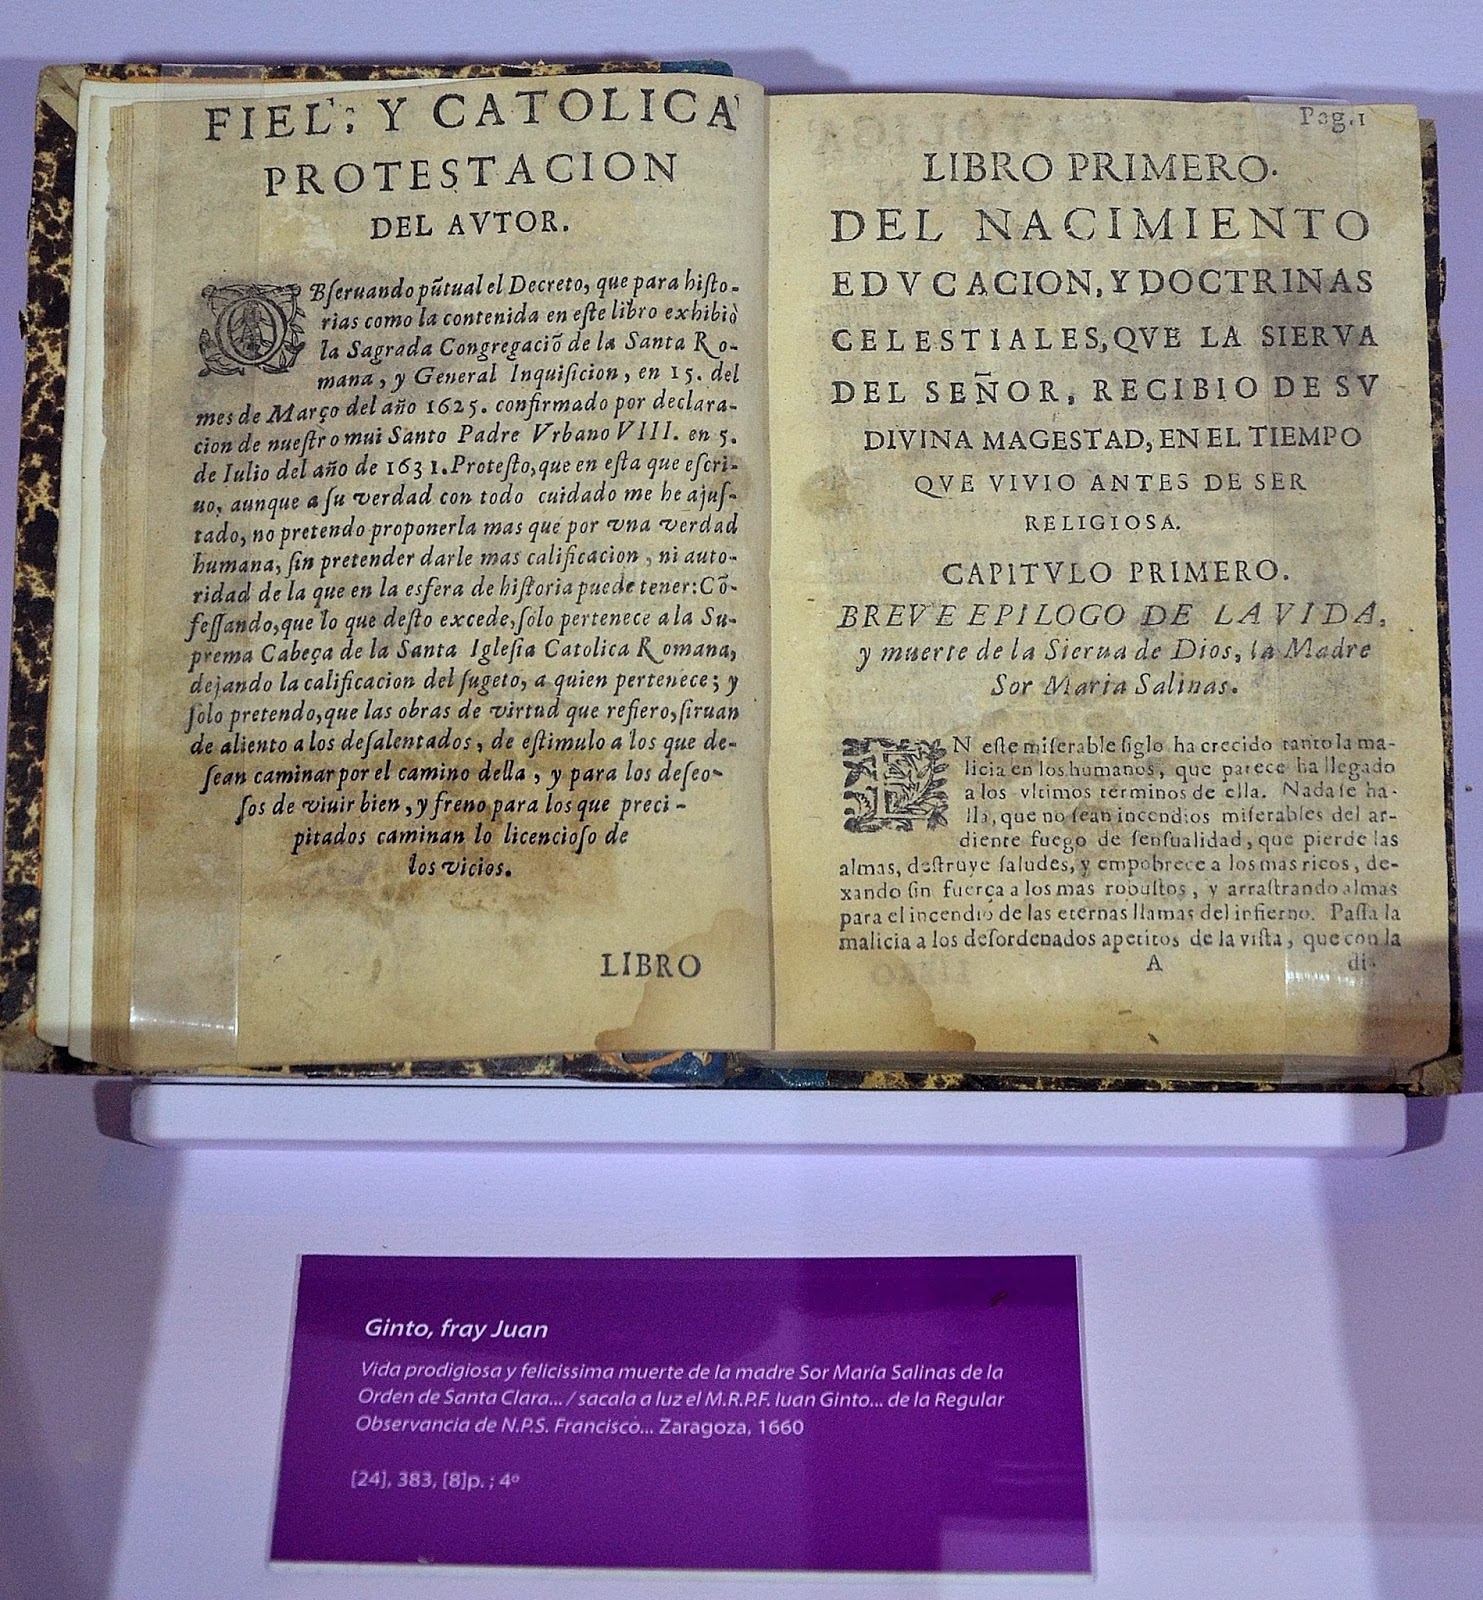 FIEL, Y CATOLICA
PROTESTACION
DEL AVTOR.
OBseruando pũtual el Decreto, que para histo-
rias como la contenida en este libro exhibiò
la Sagrada Congregaciõ de la Santa Ro-
mana, y General Inquisicion, en 15. del
mes de Março del año 1625. confirmado por declara-
cion de nuestro mui Santo Padre Vrbano VIII. en 5.
de Iulio del año de 1631. Protesto, que en esta que escri-
uo, aunque a su verdad con todo cuidado me he ajus-
tado, no pretendo proponerla mas que por vna verdad
humana, sin pretender darle mas calificacion, ni auto-
ridad de la que en la esfera de historia puede tener: Cõ-
fessando, que lo que desto excede, solo pertenece a la Su-
prema Cabeça de la Santa Iglesia Catolica Romana,
dejando la calificacion del sugeto, a quien pertenece; y
solo pretendo, que las obras de virtud que refiero, siruan
de aliento a los desalentados, de estimulo a los que de-
sean caminar por el camino della, y para los deseo-
sos de viuir bien, y freno para los que preci-
pitados caminan lo licencioso de
los vicios.
LIBRO
Pag.1
LIBRO PRIMERO.
DEL NACIMIENTO
EDVCACION, Y DOCTRINAS
CELESTIALES, QVE LA SIERVA
DEL SEÑOR, RECIBIO DE SV
DIVINA MAGESTAD, EN EL TIEMPO
QVE VIVIO ANTES DE SER
RELIGIOSA.
CAPITVLO PRIMERO.
BREVE EPILOGO DE LA VIDA,
y muerte de la Sierua de Dios, la Madre
Sor Maria Salinas.
EN este miserable siglo ha crecido tanto la ma-
licia en los humanos, que parece ha llegado
a los vltimos terminos de ella. Nada se ha-
lla, que no sean incendios miserables del ar-
diente fuego de sensualidad, que pierde las
almas, destruye saludes, y empobrece a los mas ricos, de-
xando sin fuerça a los mas robustos, y arrastrando almas
para el incendio de las eternas llamas del infierno. Passa la
malicia a los desordenados apetitos de la vista, que con la
A di-
Ginto, fray Juan
Vida prodigiosa y felicissima muerte de la madre Sor María Salinas de la
Orden de Santa Clara... / sacala a luz el M.R.P.F. Iuan Ginto... de la Regular
Observancia de N.P.S. Francisco... Zaragoza, 1660
[24], 383, [8]p. ; 4º